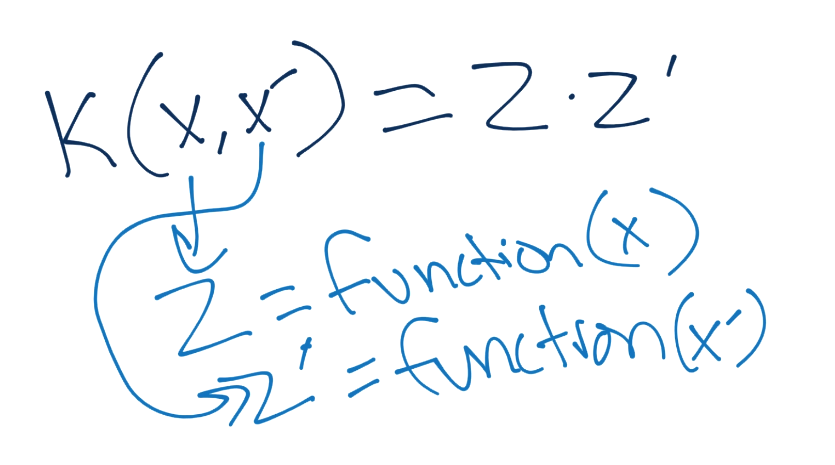 K(x,x') = Z·Z'
Z = function(x)
Z' = function(x')